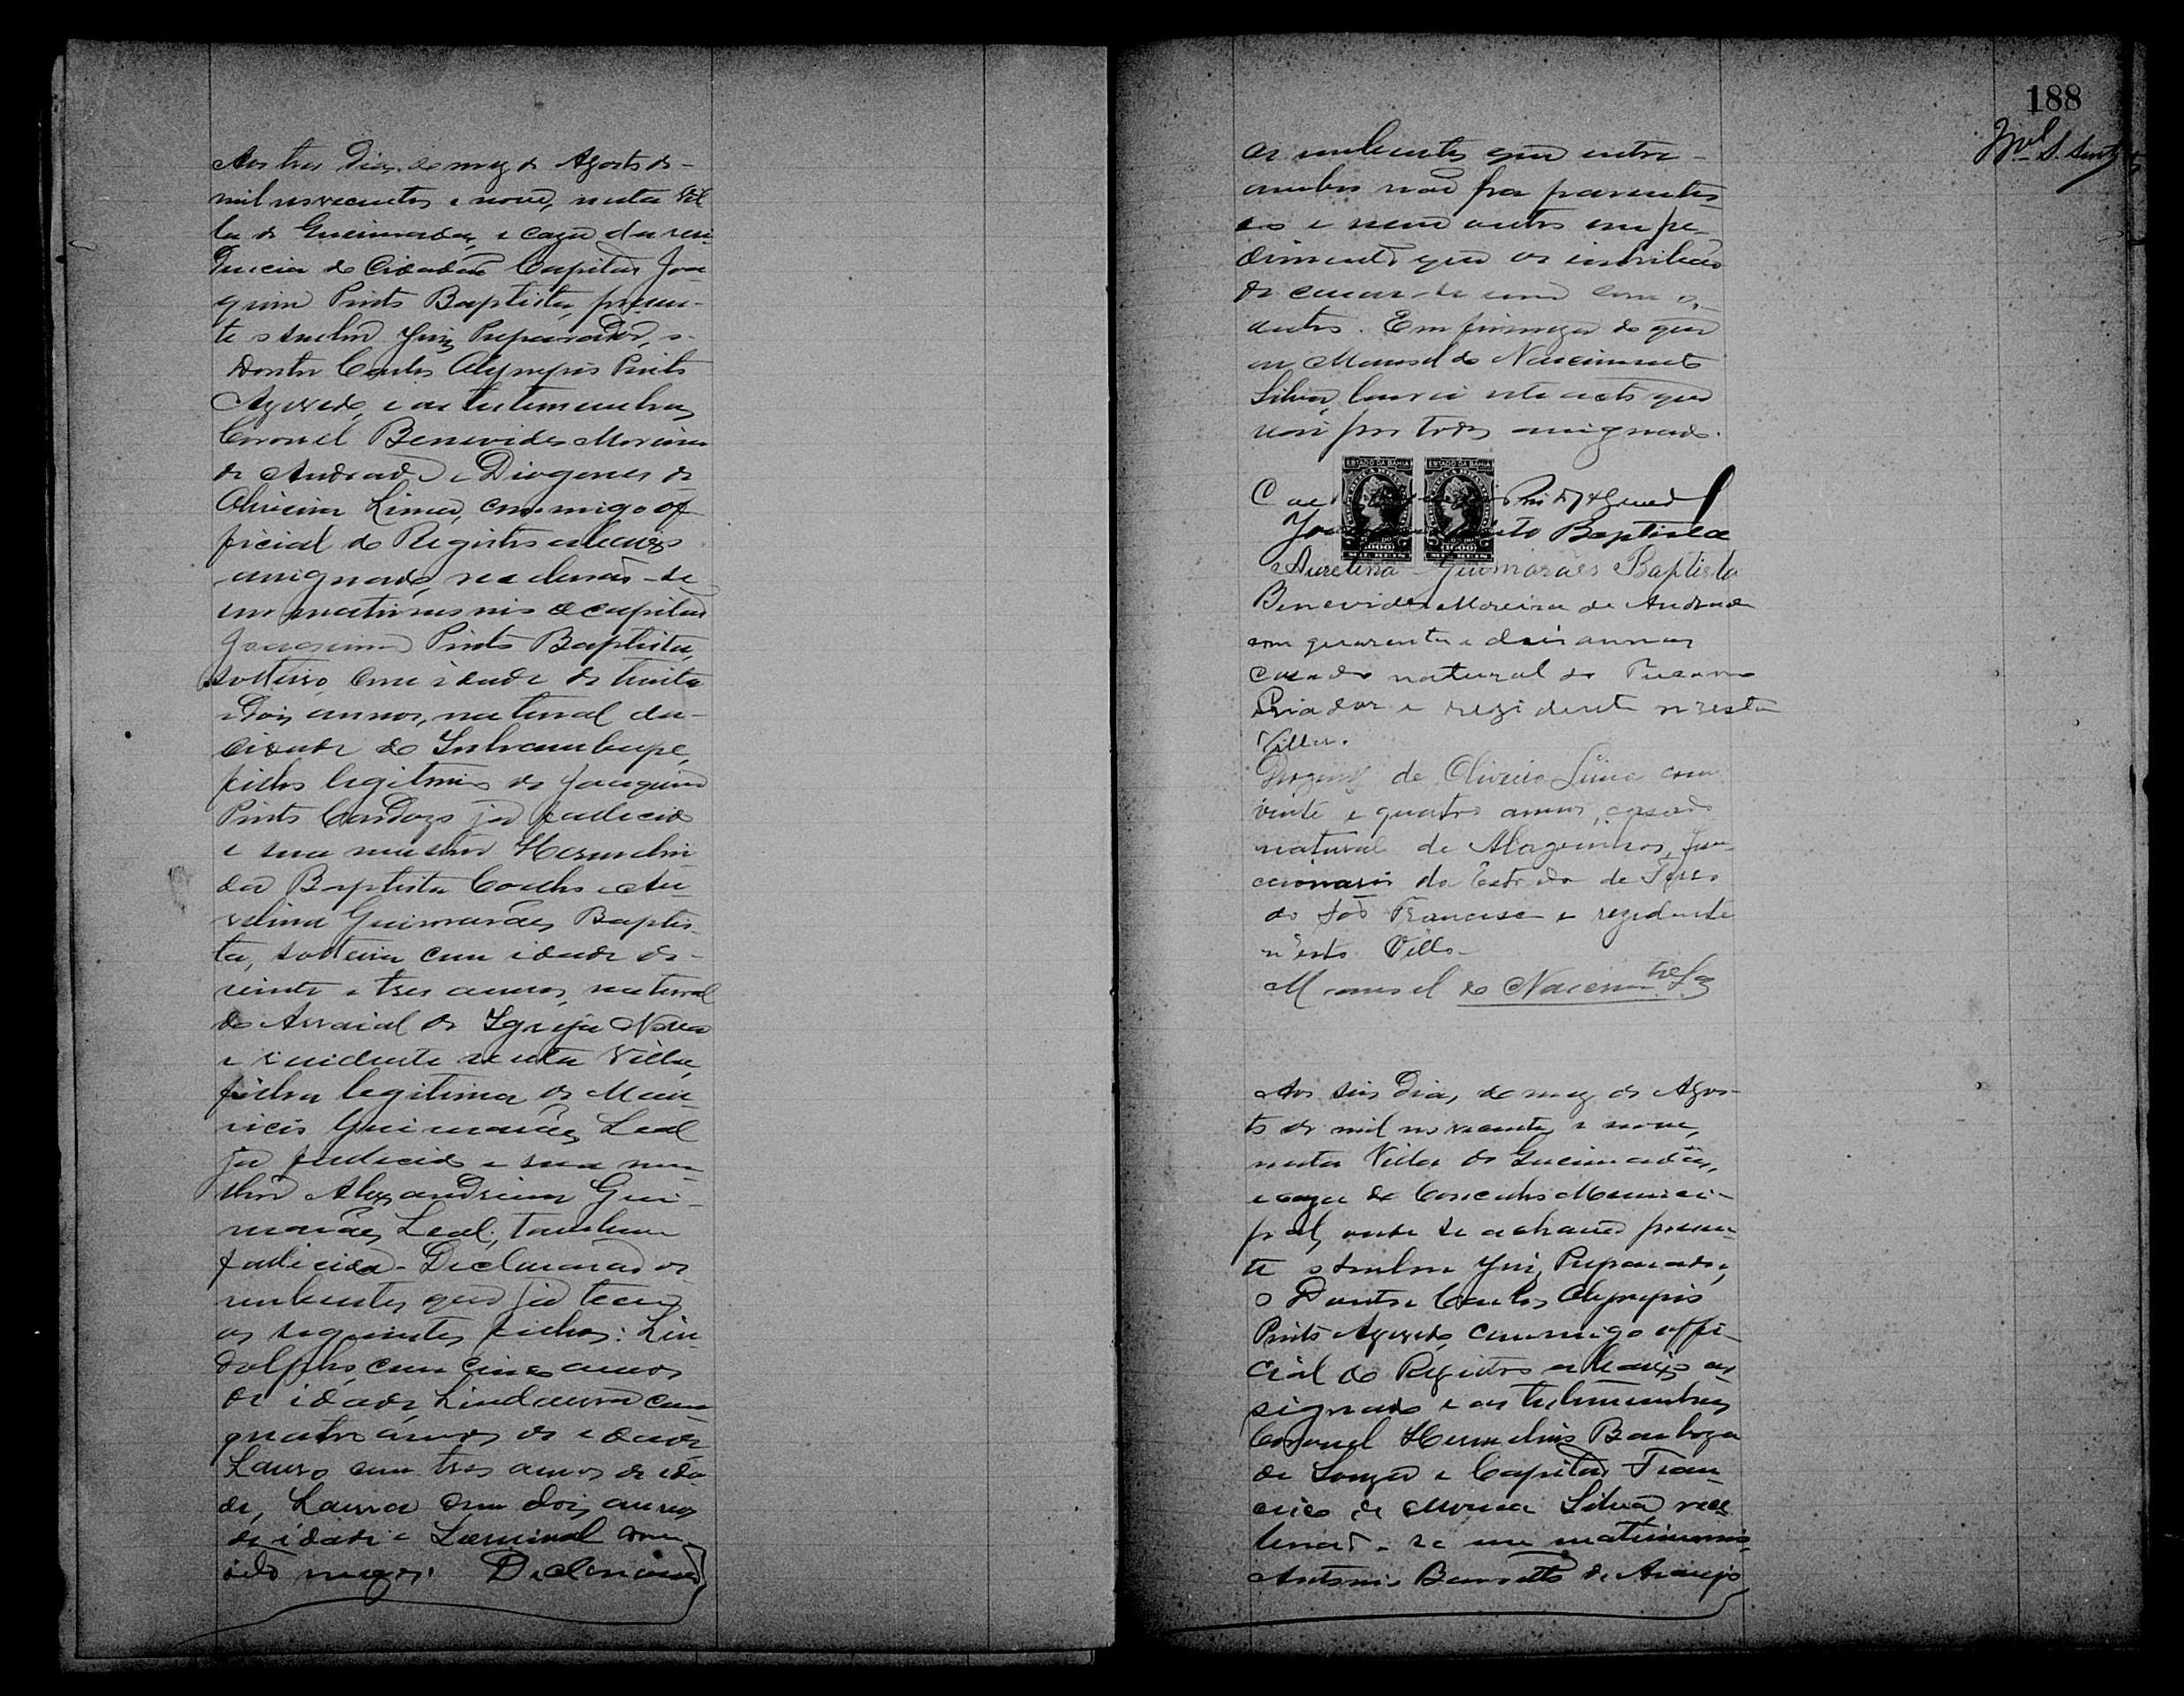 Aos tres dias do mez de Agosto de
mil novecentos e nove, nesta Vil
la de Queimadas, e caza da resi
dencia do Cidadão Capitão Joa
quim Pinto Baptista, presen-
te o senhor Juiz Preparador, o
Doutor Carlos Olympio Pinto
Azevedo, e as testemunhas
Coronel Benevides Moreira
de Andrade e Diogenes de
Oliveira Lima, commigo of
ficial do Registro abaixo
assignado, receberão-se
em matrimonio o capitão
Joaquim Pinto Baptista,
solteiro, com idade de trinta
e dois annos, natural da
cidade de Inhambupe,
filho legitimo de Joaquim
Pinto Cardozo já fallecido
e sua mulher Hermelin
da Baptista Coelho e Au
relina Guimarães Baptis
ta, solteira com idade de
vinte e tres annos, natural
do Arraial de Igreja Nova
e residente nesta Villa,
filha legitima de Mau
ricio Guimarães Leal
já fallecido e sua mu
lher Alexandrina Gui-
marães Leal, tambem
fallecida. Declararão os
nubentes que já teem
os seguintes filhos: Lin
dolpho, com cinco annos
de idade, Lindaura com
quatro annos de idade
Lauro com tres annos de ida
de, Laura com dois annos
de idade e Lourival com
oito mezes. Declararão
188
os nubentes que entre
ambos não ha parentes
co e nem outro impe-
dimento que os inhibão
de casar-se um com o
outro. Em firmeza do que
eu Manoel do Nascimento
Silva, lavrei este acto que
vai por todos assignado.
ESTADO DA BAHIA ESTADO DA BAHIA
1000 1000
MIL REIS MIL REIS
Pinto Azevedo
Joaquim Pinto Baptista
Aurelina Guimarães Baptista
Benevides Moreira de Andrade
com quarenta e dois annos
casado natural do Tucano
Criador e rezidente nesta
Villa.
Diogenes de Oliveira Lima com
vinte e quatro annos, casado
natural de Alagoinhas, fun
cionario da Estrada de Ferro
do São Francisco e rezidente
n'esta Villa.
Manoel do Nascimto Sa
Aos seis dias, do mez de Agos-
to de mil novecentos e nove,
nesta Villa de Queimadas,
e caza do Conselho Munici-
pal, onde se achava presen
te o senhor Juiz Preparador,
o Doutor Carlos Olympio
Pinto Azevedo, commigo offi-
cial do Registro abaixo as
signado e as testemunhas
Coronel Hermelino Barboza
de Souza e Capitão Fran
cisco de Moura Silva, rece
berão-se em matrimonio
Antonio Barretto de Araujo